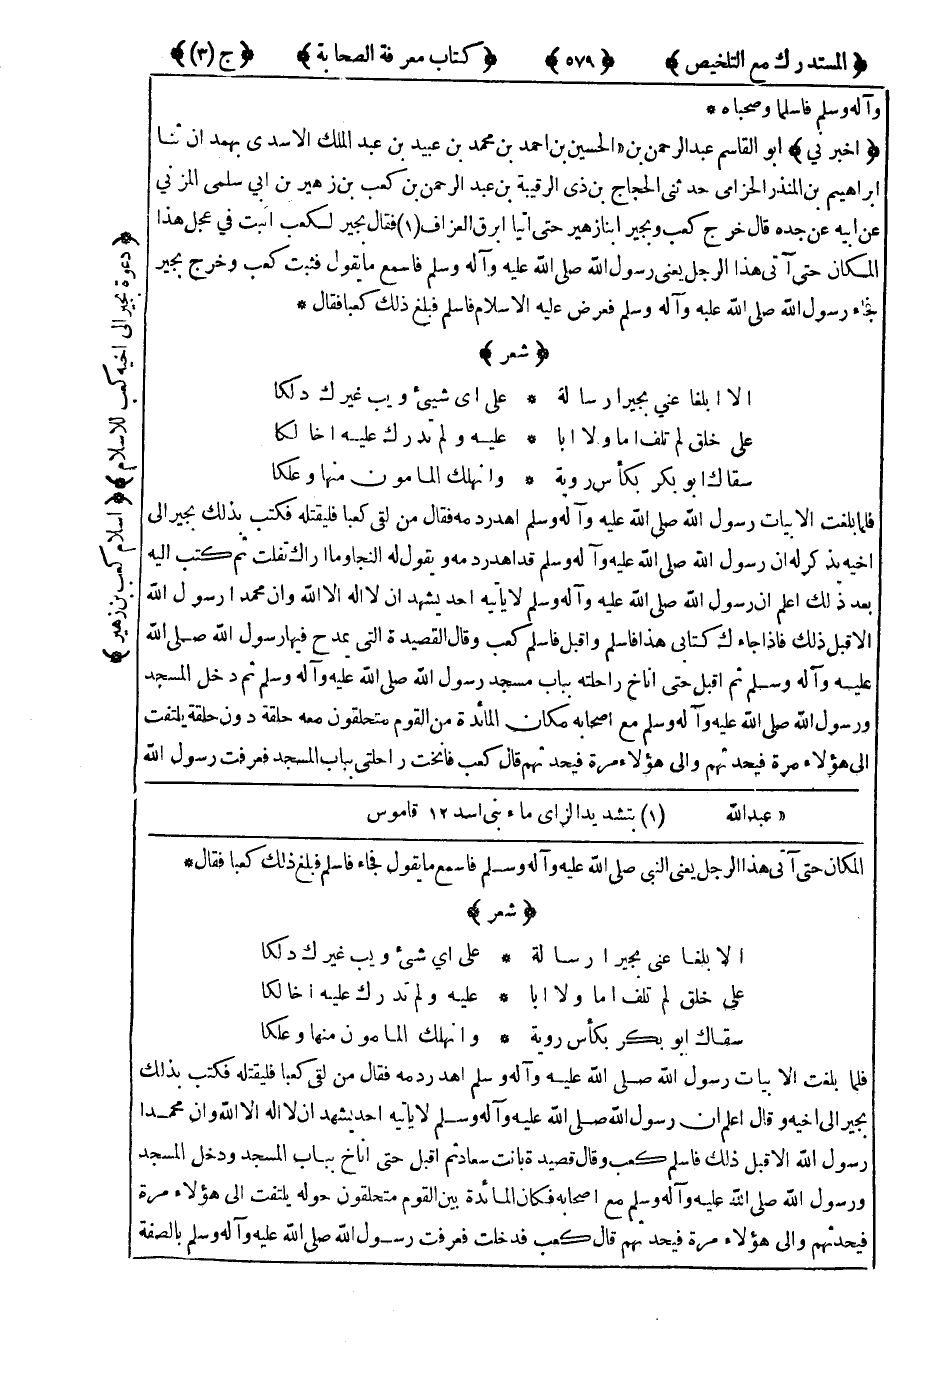 ﴿ المستدرك مع التلخيص ﴾ ﴿ ٥٧٩ ﴾ ﴿ كتاب معرفة الصحابة ﴾ ﴿ ج (٣) ﴾
وآله وسلم فاسلما وصحباه *
﴿ اخبرني ﴾ ابو القاسم عبد الرحمن بن « الحسين بن احمد بن محمد بن عبيد بن عبد الملك الاسدى بهمدان ثنا
ابراهيم بن المنذر الحزامى حدثنى الحجاج بن ذى الرقيبة بن عبد الرحمن بن كعب بن زهير بن ابي سلمى المزني
عن ابيه عن جده قال خرج كعب وبجير ابنا زهير حتى أتيا ابرق العزاف (١) فقال بجير لكعب اثبت في عجل هذا
المكان حتى آتى هذا الرجل يعنى رسول الله صلى الله عليه وآله وسلم فاسمع ما يقول فثبت كعب وخرج بجير
فجاء رسول الله صلى الله عليه وآله وسلم فعرض عليه الاسلام فاسلم فبلغ ذلك كعبا فقال *
﴿ شعر ﴾
الا ابلغا عني بجيرا رسالة * على اى شيئ ويب غيرك دلكا
على خلق لم تلف اما ولا ابا * عليه ولم تدرك عليه اخا لكا
سقاك ابو بكر بكأس روية * وانهلك المامون منها وعلكا
فلما بلغت الابيات رسول الله صلى الله عليه وآله وسلم اهدر دمه فقال من لقى كعبا فليقتله فكتب بذلك بجير الى
اخيه يذكر له ان رسول الله صلى الله عليه وآله وسلم قد اهدر دمه و يقول له النجا وما اراك تفلت ثم كتب اليه
بعد ذلك اعلم ان رسول الله صلى الله عليه وآله وسلم لا يأتيه احد يشهد ان لا اله الا الله وان محمدا رسول الله
الا قبل ذلك فاذا جاءك كتابى هذا فاسلم واقبل فاسلم كعب وقال القصيدة التى يمدح فيها رسول الله صلى الله
عليه وآله وسلم ثم اقبل حتى اناخ راحلته بباب مسجد رسول الله صلى الله عليه وآله وسلم ثم دخل المسجد
ورسول الله صلى الله عليه وآله وسلم مع اصحابه مكان المائدة من القوم متحلقون معه حلقة دون حلقة يلتفت
الى هؤلاء مرة فيحدثهم والى هؤلاء مرة فيحدثهم قال كعب فانخت راحلتى بباب المسجد فعرفت رسول الله
« عبد الله (١) بتشديد الزاى ماء بنى اسد ١٢ قاموس
المكان حتى آتى هذا الرجل يعنى النبى صلى الله عليه وآله وسلم فاسمع ما يقول فجاء فاسلم فبلغ ذلك كعبا فقال *
﴿ شعر ﴾
الا بلغا عني بجيرا رسالة * على اي شئ ويب غيرك دلكا
على خلق لم تلف اما ولا ابا * عليه ولم تدرك عليه اخا لكا
سقاك ابو بكر بكأس روية * وانهلك المامون منها وعلكا
فلما بلغت الابيات رسول الله صلى الله عليه وآله وسلم اهدر دمه فقال من لقى كعبا فليقتله فكتب بذلك
بجير الى اخيه و قال اعلم ان رسول الله صلى الله عليه وآله وسلم لا يأتيه احد يشهد ان لا اله الا الله وان محمدا
رسول الله الا قبل ذلك فاسلم كعب وقال قصيدة بانت سعاد ثم اقبل حتى اناخ بباب المسجد ودخل المسجد
ورسول الله صلى الله عليه وآله وسلم مع اصحابه فكان المائدة بين القوم متحلقون حوله يلتفت الى هؤلاء مرة
فيحدثهم والى هؤلاء مرة فيحدثهم قال كعب فدخلت فعرفت رسول الله صلى الله عليه وآله وسلم بالصفة
﴿ دعوة بجير الى اخيه كعب للاسلام ﴾ ﴿ اسلام كعب بن زهير ﴾